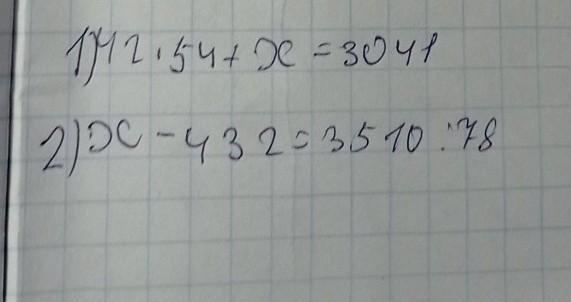 1) 42 · 54 + x = 3041
2) x - 432 = 3510 : 78